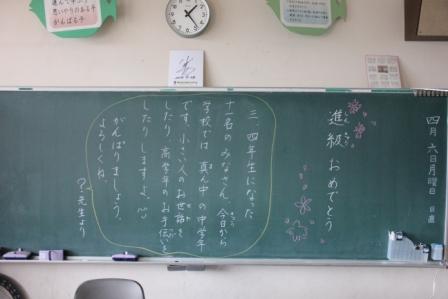 四月 六日月曜日 日直
進級 おめでとう
しん きゅう
三、四年生になった
十一名のみなさん、今日から
学校では 真ん中の中学年
です。小さい人のお世話を
したり、高学年のお手伝いを
したりしますよ。
がんばりましょう。
よろしくね。
？先生より
思いやりのある子
がんばる子